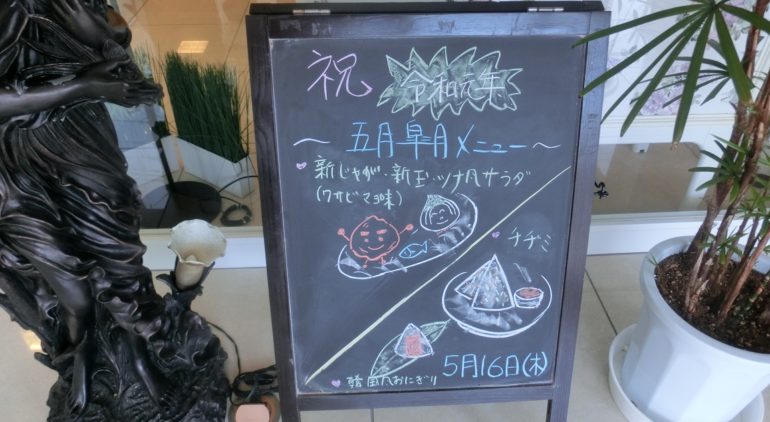 祝
令和元年
～五月皐月メニュー～
新じゃが・新玉・ツナ缶サラダ
(ワサビマヨ味)
チヂミ
おにぎり
5月16日(木)